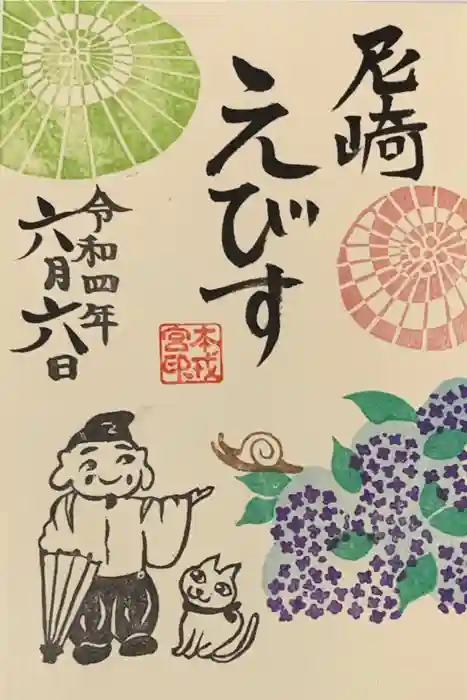 尼崎
えびす
令和四年
六月六日
本戎
宮印